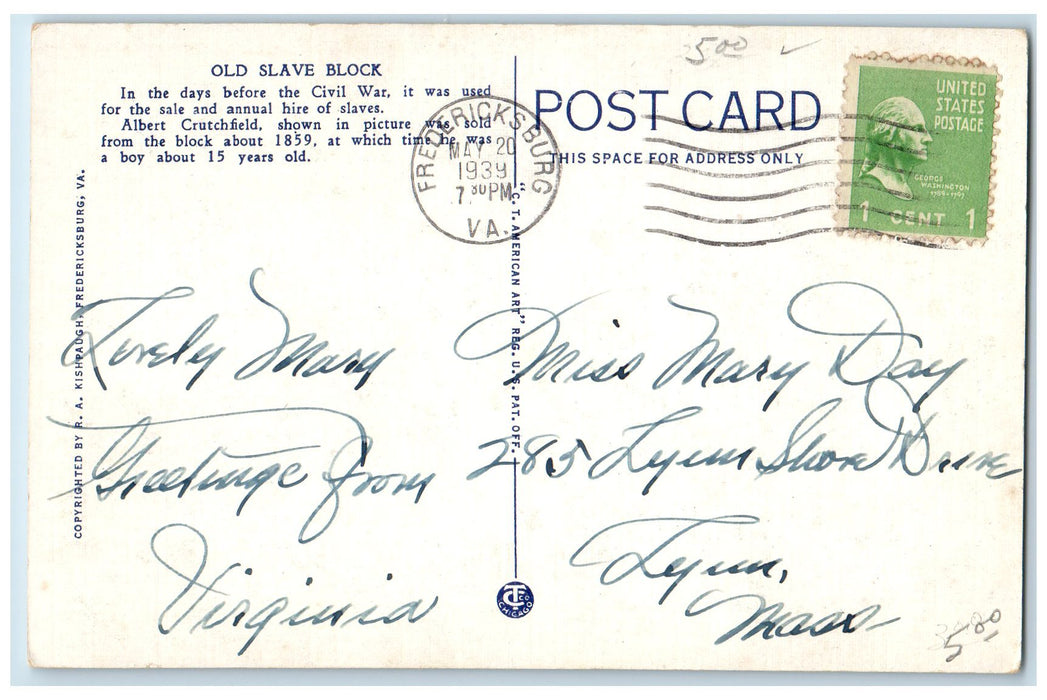 OLD SLAVE BLOCK
In the days before the Civil War, it was used
for the sale and annual hire of slaves.
Albert Crutchfield, shown in picture was sold
from the block about 1859, at which time he was
a boy about 15 years old.
COPYRIGHTED BY R. A. KISHPAUGH, FREDERICKSBURG, VA.
FREDERICKSBURG
MAY 20
1939
7 30 PM
VA.
"C. T. AMERICAN ART" REG. U.S. PAT. OFF.
5 00
POST CARD
THIS SPACE FOR ADDRESS ONLY
UNITED
STATES
POSTAGE
GEORGE
WASHINGTON
1789-1797
1 CENT 1
Lovely Mary
Greetings from
Virginia
Miss Mary Day
285 Lynn Shore Drive
Lynn,
Mass
CT Co
CHICAGO